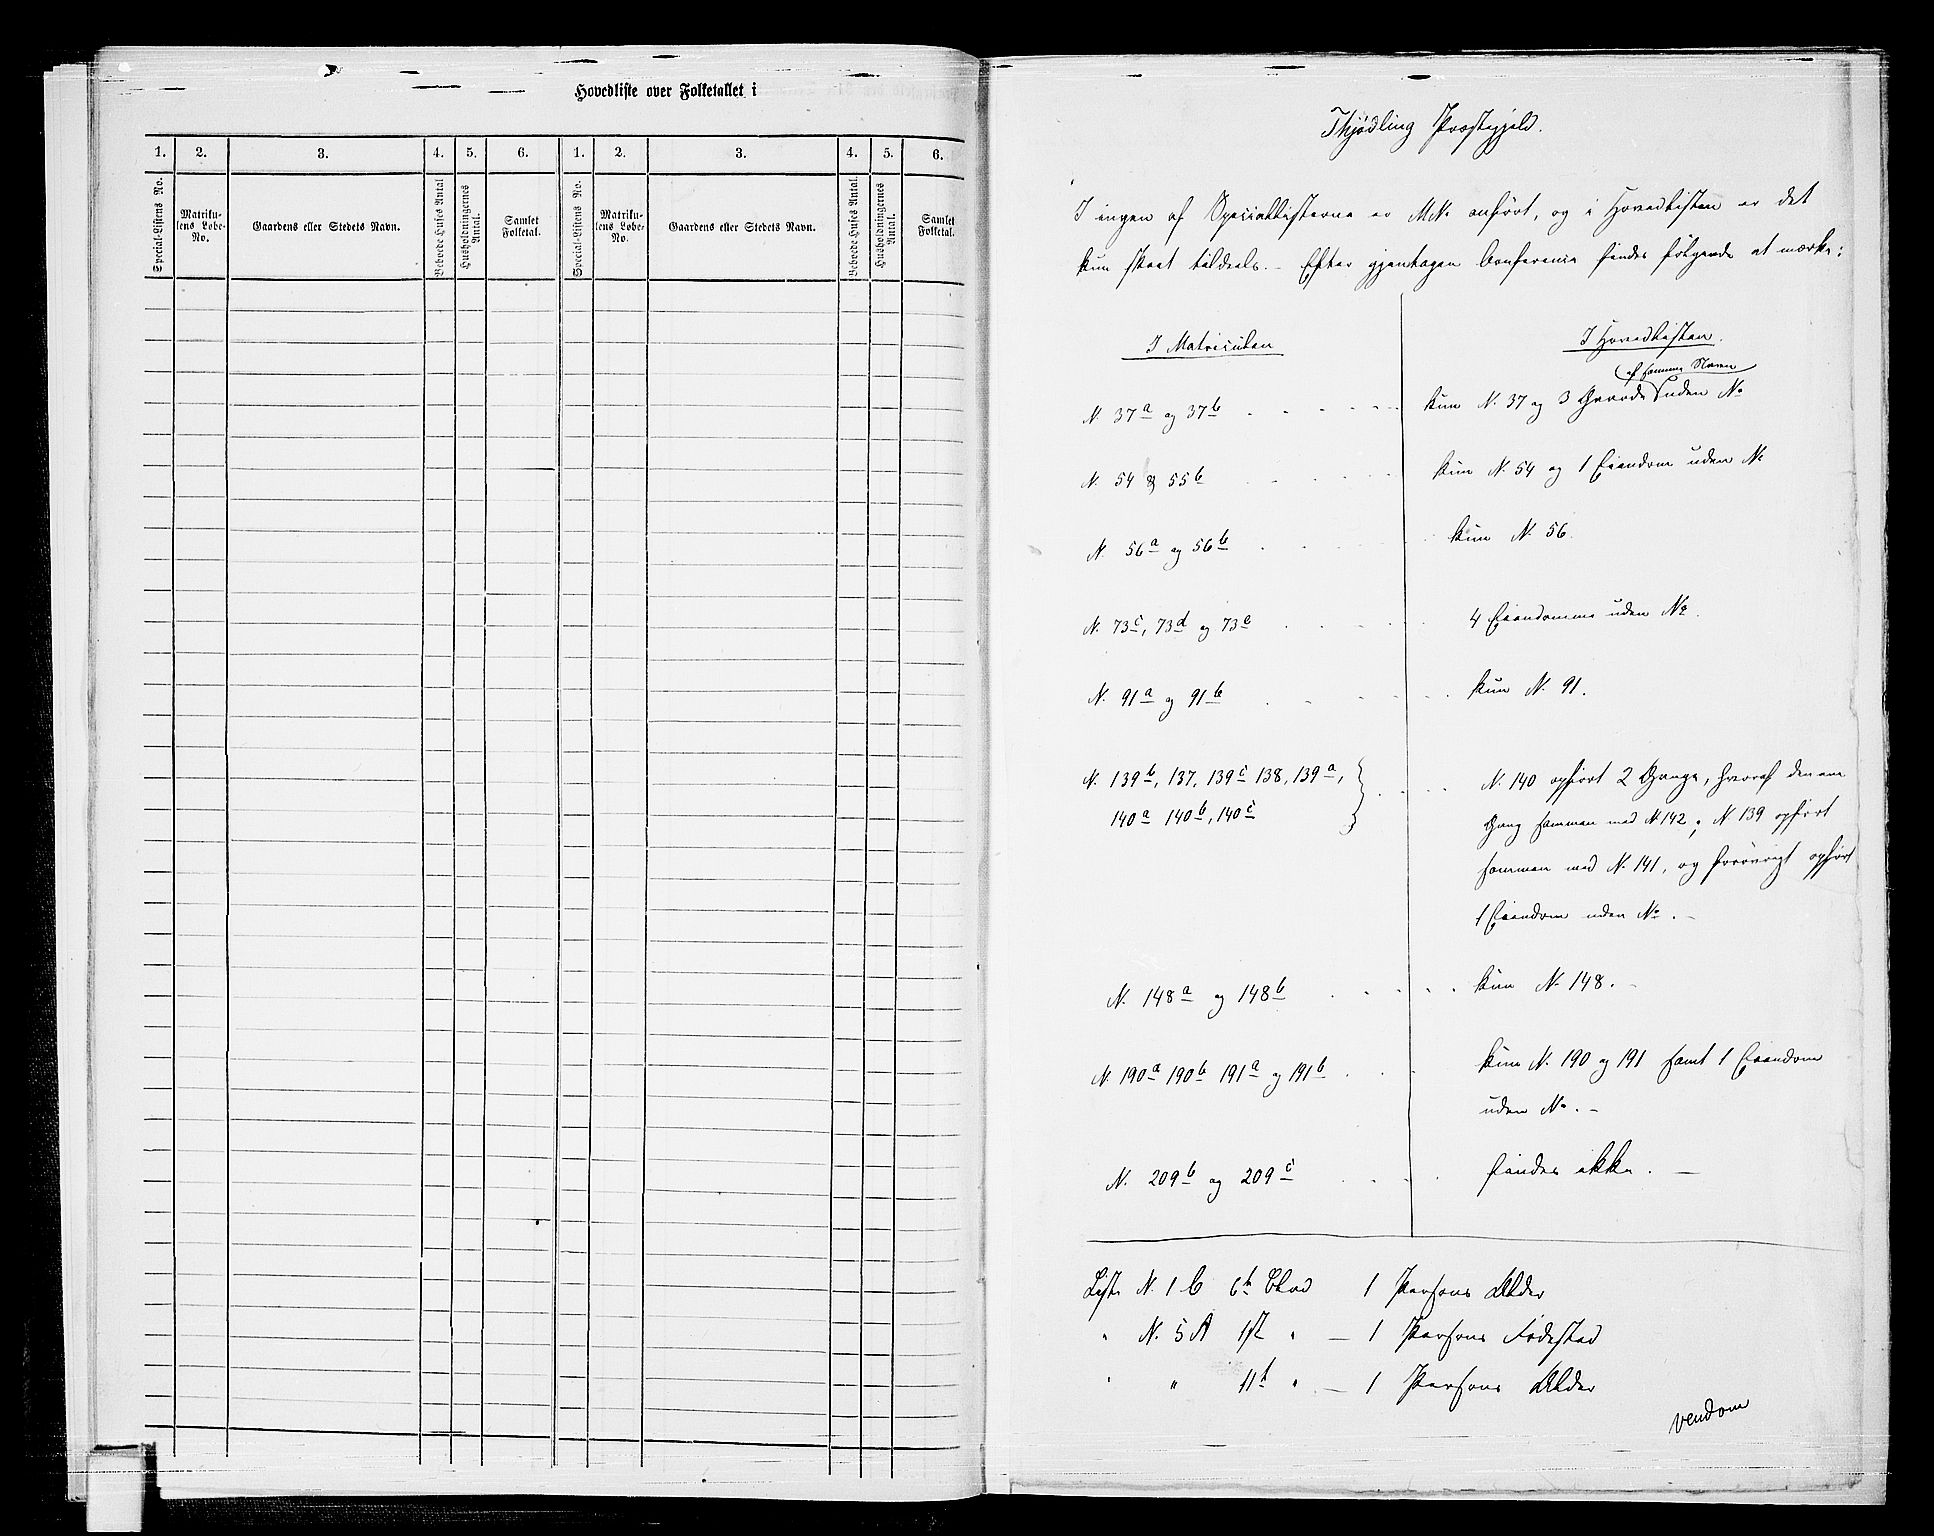 Hovedliste over Folketallet i
1. 2. 3. 4. 5. 6. 1. 2. 3. 4. 5. 6.
Special-Listens No.
Matriku-
lens Løbe-
No.
Gaardens eller Stedets Navn.
Beboede Huses Antal
Husholdningernes
Antal.
Samlet
Folketal.
Special-Listens No.
Matriku-
lens Løbe-
No.
Gaardens eller Stedets Navn.
Beboede Huses Antal.
Husholdningernes
Antal.
Samlet
Folketal.
Thjødling Præstegjeld.
I ingen af Speciallisterne er MNo anført, og i Hovedlisten er det
kun skeet tildeels. – Efter gjentagen Conference findes følgende at mærke:
I Matriculen
I Hovedlisten.
af samme Navn
N. 37a og 37b . . . . . kun N. 37 og 3 Gaarde uden No
N. 54 & 55b . . . . kun N. 54 og 1 Eiendom uden No
N. 56a og 56b . . . . kun N. 56.
N. 73c, 73d og 73e . . . . 4 Eiendomme uden No.
N. 91a og 91b . . . . . kun N. 91.
N. 139b, 137, 139c 138, 139a, } . . . . N. 140 opført 2 Gange, hvoraf den ene
140a 140b, 140c Gang sammen med N 142; N 139 opført
sammen med N. 141, og forøvrigt opført
1 Eiendom uden No. –
N. 148a og 148b . . . . . kun N. 148. –
N. 190a 190b 191a og 191b . . . kun N. 190 og 191 samt 1 Eiendom
uden No. –
N. 209b og 209c . . . . findes ikke. –
Liste N. 1 C 6te Blad 1 Persons Alder
" N. 5 A 1ste " – 1 Persons Fødested
" " 11te " – 1 Persons Alder